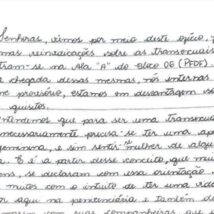 Senhoras, vimos por meio deste ofício,
mas reinvidicações sobre as transexuais
tram-se na Ala "A" do Bloco 06 (PFDF).
a chegada dessas mesmas, nós internas
presídio, estamos em desvantagem
quistos.
Entendemos que para ser uma transexual
necessariamente precisa-se ter uma
feminina, e sim sentir mulher de
E é a partir desse conceito, que
se declaram com essa orientação.
muitos com o intuito de ter uma vida
aqui na penitenciária e também
com suas companheiras que